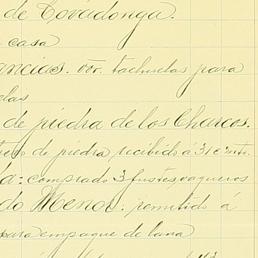 de Covadonga.
casa
ancias. vor. tachuelas para
las
de piedra de los Charcos.
de piedra recibido á
a: comprado 3 fustes vaqueros
do Menor. remitido á
para empaque de lana